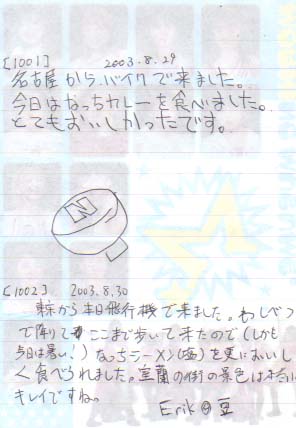 [1001] 2003.8.29
名古屋からバイクで来ました。
今日はなっちカレーを食べました。
とてもおいしかったです。
N
[1002] 2003.8.30
東京から本日飛行機で来ました。わしべつ
で降りて ここまで歩いて来たので(しかも
今日は暑い!) なっちラーメン(塩)を更においし
く食べられました。室蘭の街の景色は本当に
キレイですね。
Erik@豆